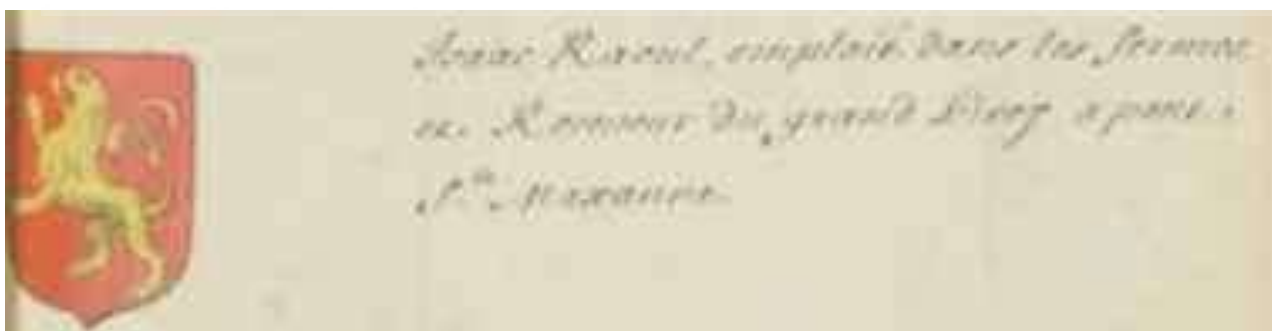 Isaac Raoul, emploié dans les fermes
et Receveur du grand Bureau a pont
S.te Maxance.